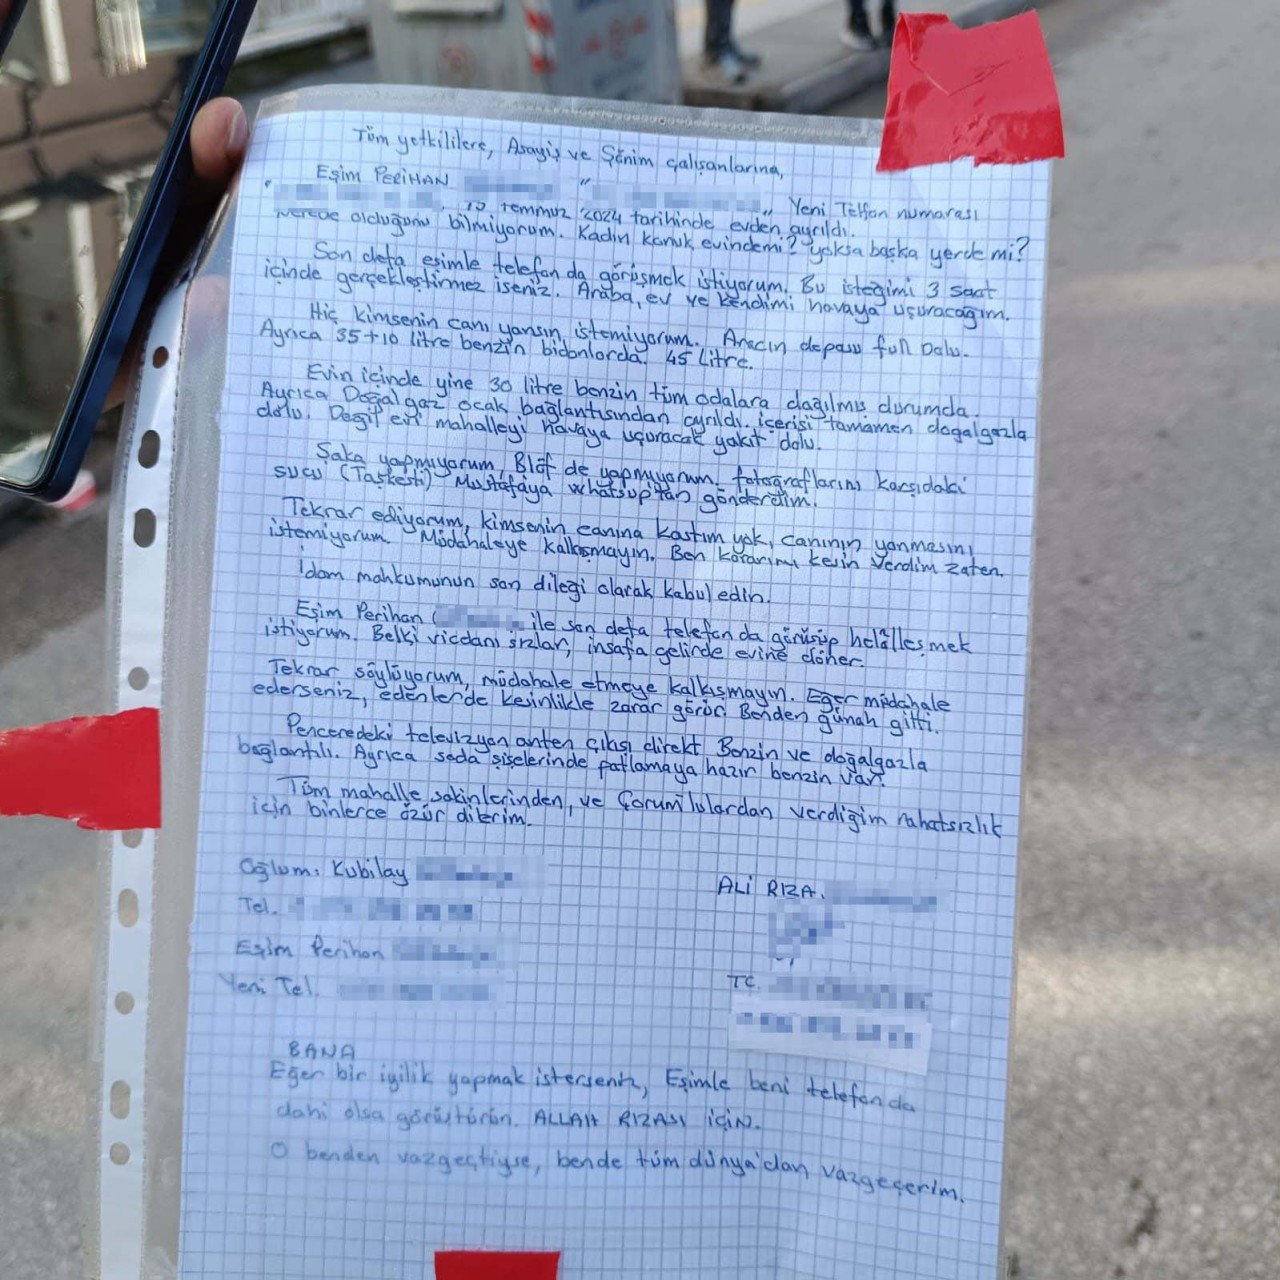 Tüm yetkililere, Asayiş ve Şönim çalışanlarına,
Eşim PERİHAN
" " Yeni Telfon numarası
19 temmuz 2024 tarihinde evden ayrıldı.
Nerede olduğunu bilmiyorum. Kadın konuk evindemi? yoksa başka yerde mi?
Son defa eşimle telefon da görüşmek istiyorum. Bu isteğimi 3 saat
içinde gerçekleştirmez iseniz. Araba, ev ve kendimi havaya uçuracağım.
Hiç kimsenin canı yansın istemiyorum. Aracın deposu full Dolu.
Ayrıca 35+10 litre benzin bidonlarda. 45 Litre.
Evin içinde yine 30 litre benzin tüm odalara dağılmış durumda.
Ayrıca Doğal gaz ocak bağlantısından ayrıldı. içerisi tamamen doğalgazla
dolu. Değil evi mahalleyi havaya uçuracak yakıt dolu.
Şaka yapmıyorum, Blöf de yapmıyorum. fotoğraflarını karşıdaki
sucu (Taşkesti) Mustafaya whatsuptan gönderdim.
Tekrar ediyorum, kimsenin canına kastım yok, canının yanmasını
istemiyorum. Müdahaleye kalkışmayın. Ben kararımı kesin verdim zaten.
İdam mahkumunun son dileği olarak kabul edin.
Eşim Perihan ile son defa telefon da görüşüp helâlleşmek
istiyorum. Belki vicdanı sızlar, insafa gelirde evine döner.
Tekrar söylüyorum, müdahale etmeye kalkışmayın. Eğer müdahale
ederseniz, edenler'de kesinlikle zarar görür. Benden günah gitti.
Penceredeki televizyon anten çıkışı direkt Benzin ve doğalgazla
bağlantılı. Ayrıca soda şişelerinde patlamaya hazır benzin var.
Tüm mahalle sakinlerinden, ve Çorum'lulardan verdiğim rahatsızlık
için binlerce özür dilerim.
Oğlum: Kubilay
Tel.
Eşim Perihan
Yeni Tel.
ALİ RIZA
TC.
BANA
Eğer bir iyilik yapmak isterseniz, Eşimle beni telefonda
dahi olsa görüştürün. ALLAH RIZASI İÇİN.
O benden vazgeçtiyse, bende tüm dünya'dan vazgeçerim.